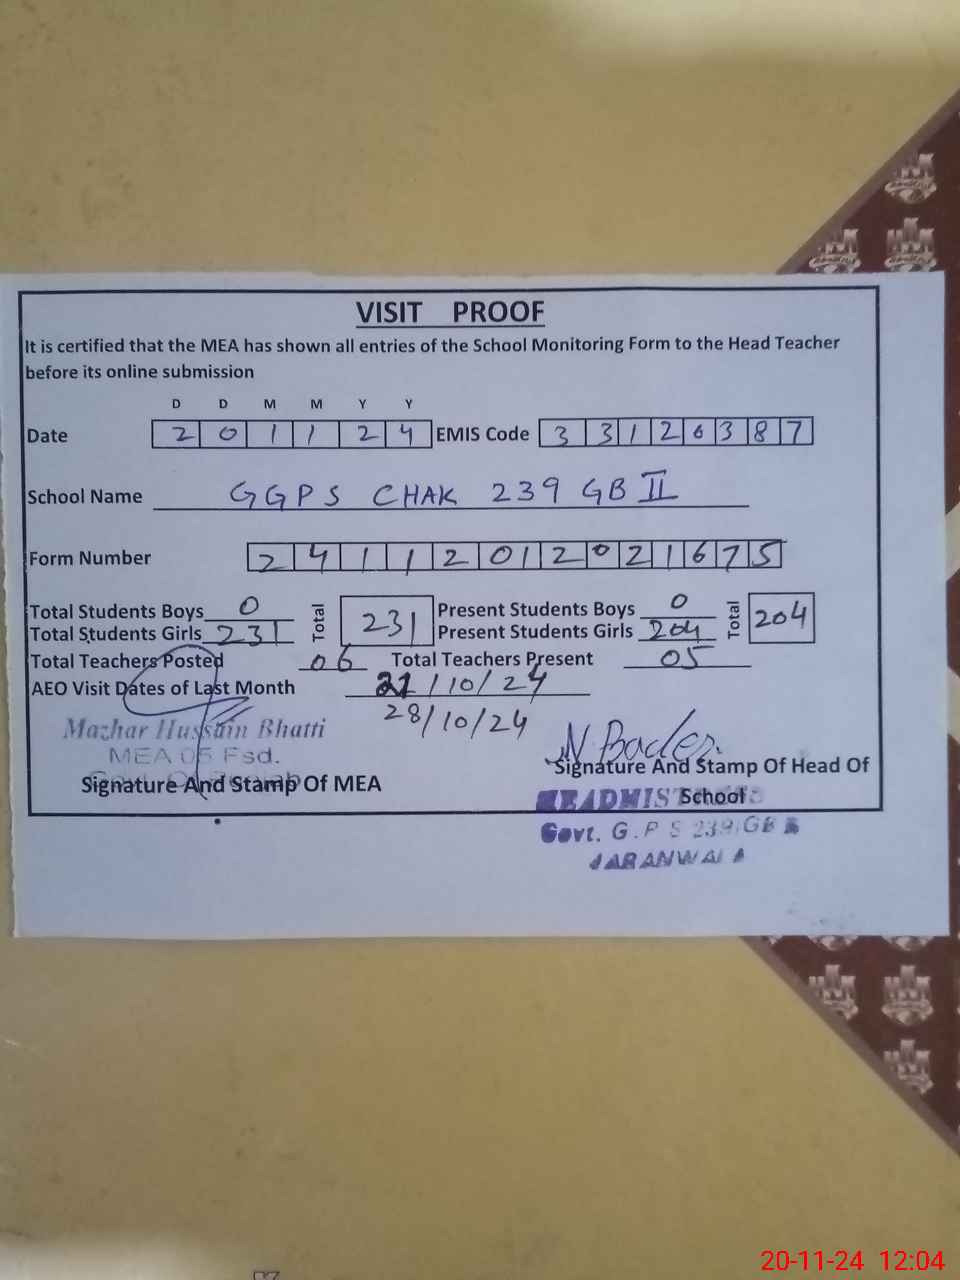 VISIT PROOF
It is certified that the MEA has shown all entries of the School Monitoring Form to the Head Teacher
before its online submission
D D M M Y Y
Date 2 0 1 1 2 4 EMIS Code 3 3 1 2 6 3 8 7
School Name GGPS CHAK 239 GB II
Form Number 2 4 1 1 2 0 1 2 0 2 1 6 7 5
Total Students Boys 0 Total 231 Present Students Boys 0 Total 204
Total Students Girls 231 Present Students Girls 204
Total Teachers Posted 06 Total Teachers Present 05
AEO Visit Dates of Last Month 21/10/24
28/10/24
Mazhar Hussain Bhatti
MEA 05 Fsd.
Signature And Stamp Of MEA
N Bader
Signature And Stamp Of Head Of
School
HEADMISTRESS
Govt. G.P S 239/GB
JARANWALA
20-11-24 12:04